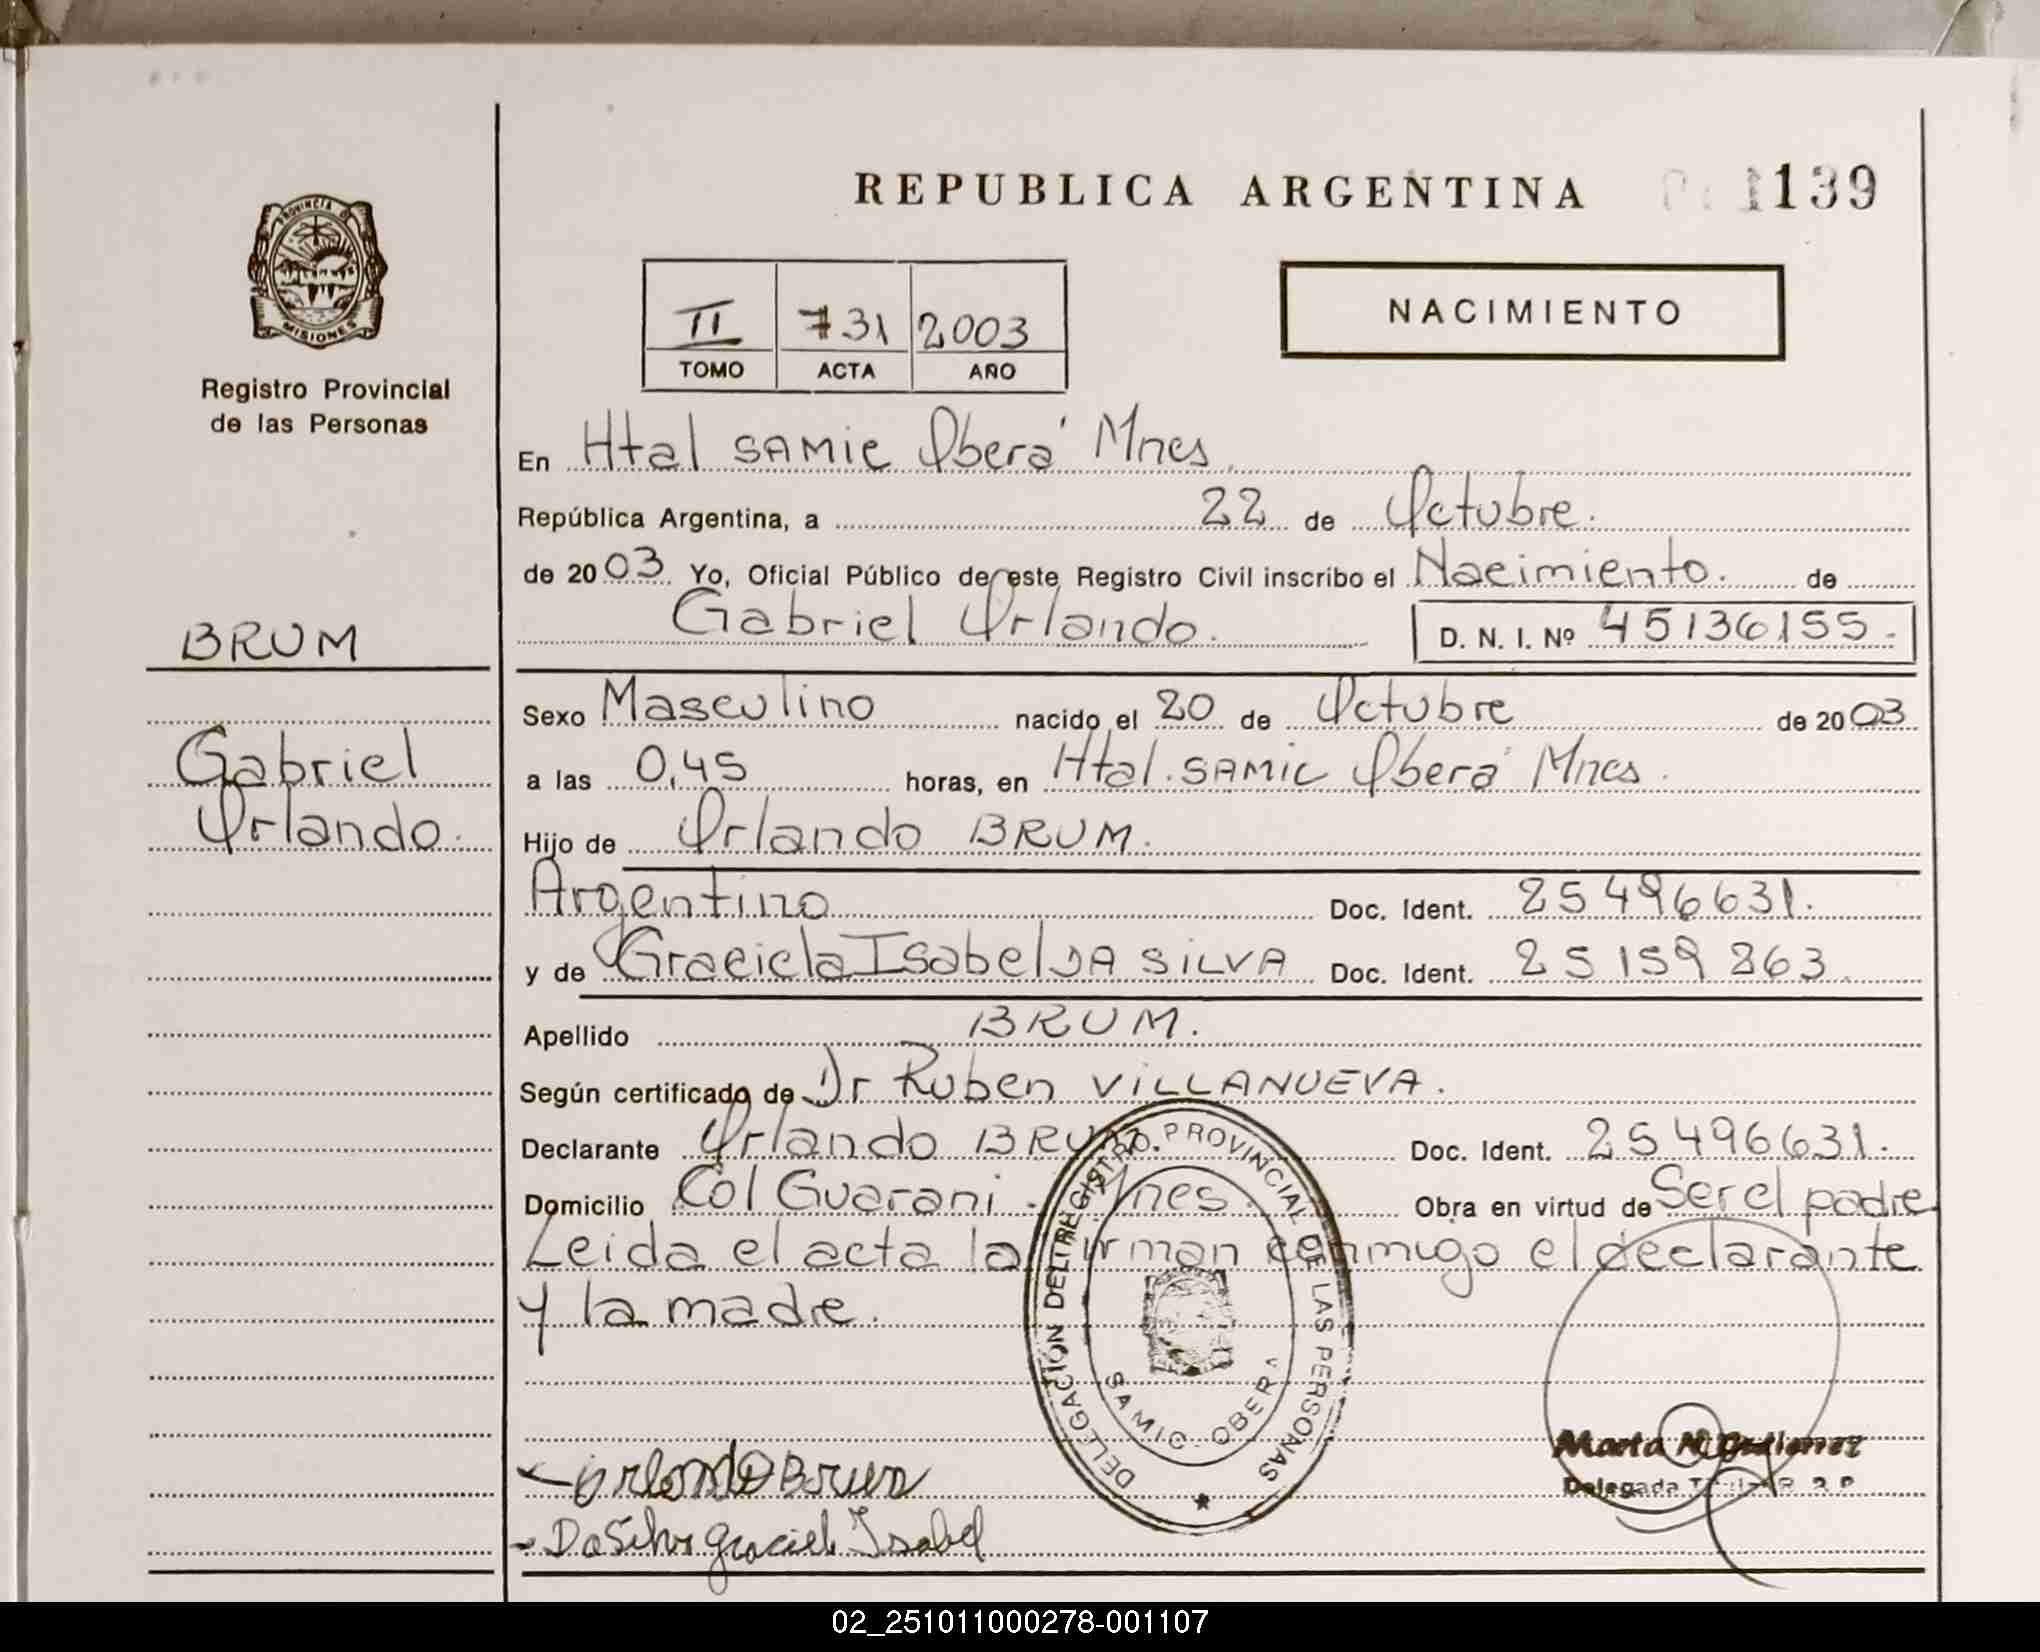 REPUBLICA ARGENTINA 139
PROVINCIA D
MISIONES
Registro Provincial
de las Personas
NACIMIENTO
II 731 2003
TOMO ACTA AÑO
En Htal SAMIC Oberá Mnes
República Argentina, a 22 de Octubre.
de 2003 Yo, Oficial Público de este Registro Civil inscribo el Nacimiento. de
Gabriel Orlando. D. N. I. Nº 45136155.
BRUM
Gabriel
Orlando.
Sexo Masculino nacido el 20 de Octubre de 2003
a las 0,45 horas, en Htal. SAMIC Oberá Mnes.
Hijo de Orlando BRUM.
Argentino Doc. Ident. 25496631.
y de Graciela Isabel DA SILVA Doc. Ident. 25159263.
Apellido BRUM.
Según certificado de Dr Ruben VILLANUEVA.
Declarante Orlando BRUM. Doc. Ident. 25496631.
Domicilio Col Guarani. Mnes. Obra en virtud de Ser el padre
Leida el acta la firman conmigo el declarante
y la madre.
DELEGACIÓN DEL REGISTRO PROVINCIAL DE LAS PERSONAS
SAMIC - OBERA
Orlando Brum
Da Silva Graciela Isabel
Marta N. Gutierrez
Delegada Titular R. P.
02_251011000278-001107